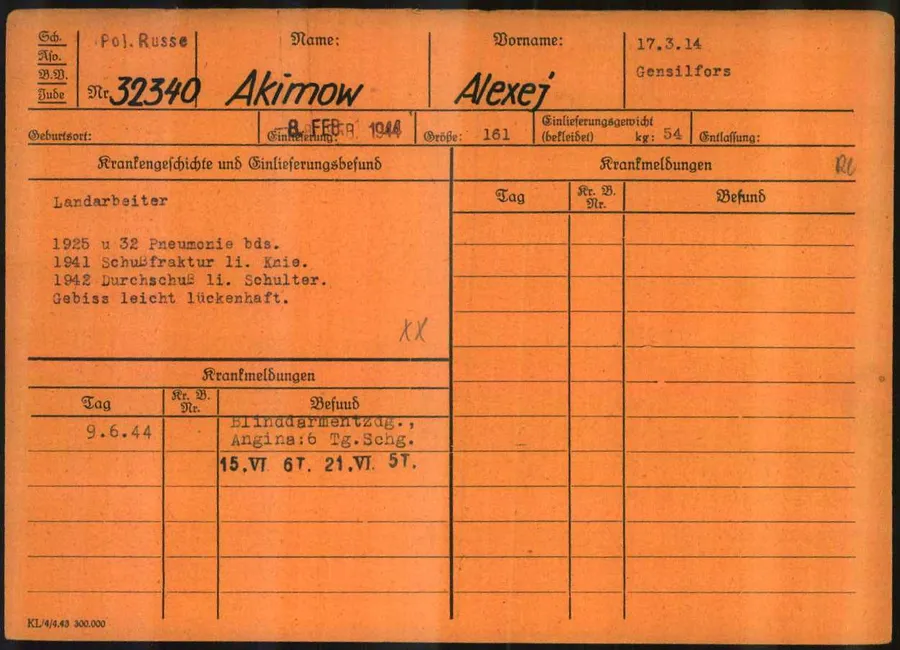 Sch.
Aso.
B.V.
Jude
Pol.Russe
Nr 32340
Name:
Akimow
Vorname:
Alexej
17.3.14
Gensilfors
Geburtsort:
Einlieferung:
8. FEB. 1944
Größe: 161
Einlieferungsgewicht
(bekleidet) kg: 54
Entlassung:
Krankengeschichte und Einlieferungsbefund
Landarbeiter
1925 u 32 Pneumonie bds.
1941 Schußfraktur li. Knie.
1942 Durchschuß li. Schulter.
Gebiss leicht lückenhaft.
XX
Krankmeldungen
Tag
Kr. B.
Nr.
Befund
9.6.44
Blinddarmentzdg.,
Angina:6 Tg.Schg.
15.VI. 6T. 21.VI. 5T.
Krankmeldungen
Tag
Kr. B.
Nr.
Befund
KL/4/4.43 300.000